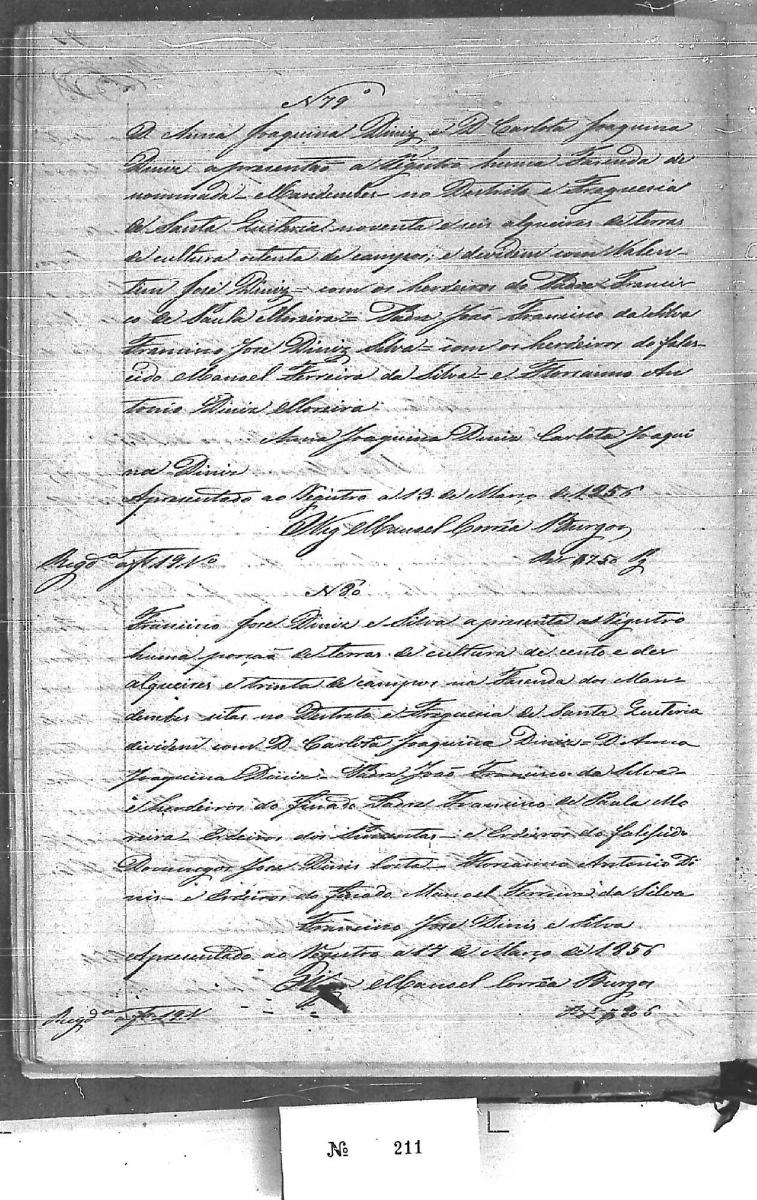 N 79º
D. Anna Joaquina Diniz, e D. Carlota Joaquina
Diniz apresentão a Registro huma Fazenda de
nominada - Mandembes - no Destrito e Freguesia
de Santa Quiteria noventa e seis alqueires de terras
de cultura oitenta de campos; e devidem com Valen-
tim José Diniz - com os herdeiros do Padre Francis
co de Paula Moreira - Padre João Francisco da Silva
Francisco José Diniz Silva - com os herdeiros do fale-
cido Manoel Ferreira da Silva - e Florianno An
tonio Diniz Moreira
Anna Joaquina Diniz Carlota Joaqui
na Diniz
Apresentado ao Registro a 13 de Março de 1856
Manoel Corrêa Burgos
Regdª a fl 191
N 80
Francisco José Diniz e Silva apresenta a Registro
huma porção de terras de cultura de cento e dez
alqueires e trinta de campos na Fazenda dos Man-
dembes sitas no Destrito e Freguesia de Santa Quiteria
dividem com D. Carlota Joaquina Diniz - D. Anna
Joaquina Diniz - Padre João Francisco da Silva -
e herdeiros do finado Padre Francisco de Paula Mo
reira - erdeiros dos - e erdeiros do falesido
Domingos José Dinis Costa - Florianno Antonio Di
nis - e erdeiros do finado Manoel Ferreira da Silva
Francisco José Dinis e Silva
Apresentado ao Registro a 17 de Março de 1856
Manoel Corrêa Burgos
Regdª a fl 191
Nº 211